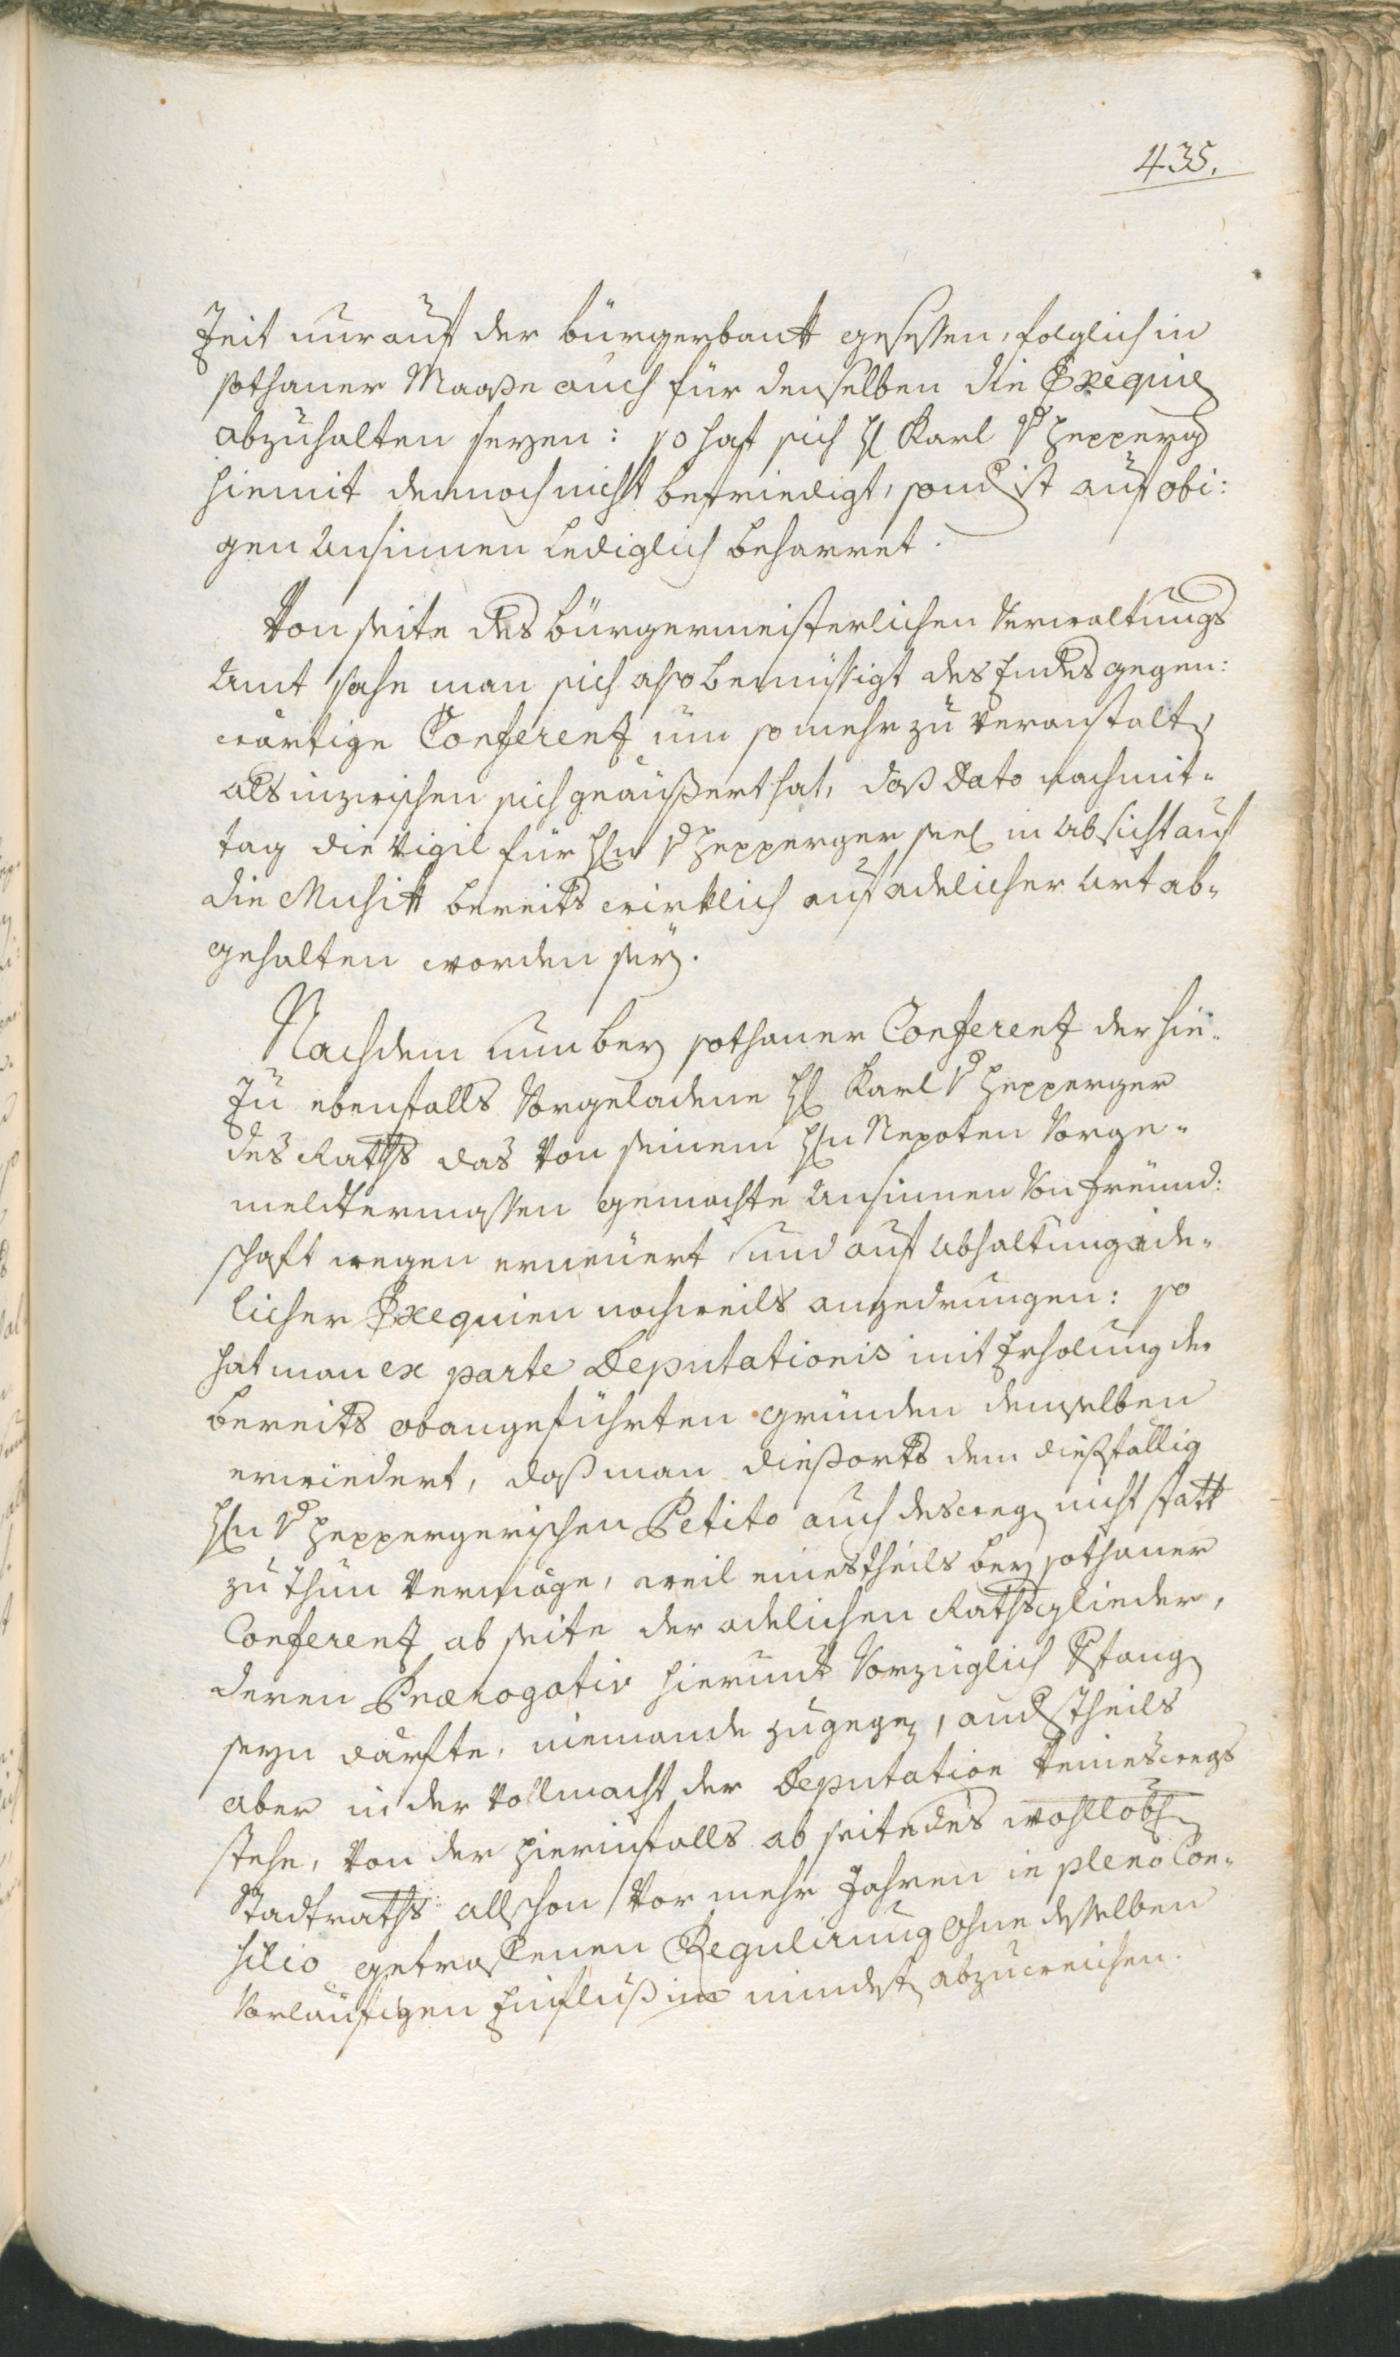 435.
Zeit nur auf der bürgerbankh gesessen, folglich in
sothaner Maaße auch für denselben die Exequien
abzuhalten seyen: so hat sich H: Karl v: Hepperg:
hiemit dennoch nicht befriedigt, sond: ist auf obi:
gen Ansinnen lediglich beharret.
Von seite des bürgermeisterlichen Verwaltungs
Amt sahe man sich also bemüssigt des Endes gegen:
wärtige Conferenz um so mehr zu veranstalten,
als inzwischen sich geäußert hat, daß Dato nachmit-
tag die Vigil für H:n v: Hepperger seel: in Absicht auf
die Musikh bereits wirklich auf adelicher Art ab-
gehalten worden sey.
Nachdem nun bey sothaner Conferenz der hie-
zu ebenfalls Vorgeladene H: Karl v: Hepperger
des Raths das von seinem H:n Nepoten Vorge-
meldtermassen gemachte Ansinnen von freünd:
schaft wegen erneuert und auf Abhaltung ade-
licher Exequien nochweils angedrungen: so
hat man ex parte Deputationis mit Erholung der
bereits obangeführten gründen demselben
erwiedert, daß man diesorts dem diesfällig
H:n v: Heppergerischen Petito auch deswegen nicht statt
zu thun vermöge, weil einestheils bey sothaner
Conferenz ab seite der adelichen Rathsglieder,
deren Praerogativ hierunt: Vorzüglich Befang:
seyn därfte, niemande zugegen, and:stheils
aber in der Vollmacht der Deputation keineswegs
stehe, von der hierinfalls ab seite des wohllöbl:
Stadtraths allschon vor mehr Jahren in pleno Con-
silio getroffenen Regulirung ohne desselben
Vorläufigen Einfluß im mindesten abzuweichen.